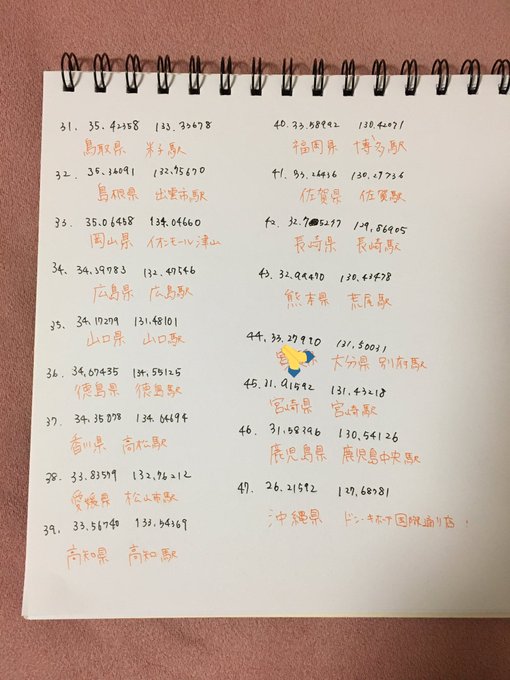 31. 35.42358 133.33678
鳥取県 米子駅
32. 35.36091 132.75670
島根県 出雲市駅
33. 35.06458 134.04660
岡山県 イオンモール津山
34. 34.39783 132.47546
広島県 広島駅
35. 34.17279 131.48101
山口県 山口駅
36. 34.07435 134.55125
徳島県 徳島駅
37. 34.35078 134.04694
香川県 高松駅
38. 33.83579 132.76212
愛媛県 松山市駅
39. 33.56740 133.54369
高知県 高知駅
40. 33.58992 130.42071
福岡県 博多駅
41. 33.26436 130.29736
佐賀県 佐賀駅
42. 129.86905
長崎県 長崎駅
43. 32.99470 130.43478
熊本県 荒尾駅
44. 33.27990 131.50031
大分県 別府駅
45. 31.91592 131.43218
宮崎県 宮崎駅
46. 31.58396 130.54126
鹿児島県 鹿児島中央駅
47. 26.21592 127.68781
沖縄県 ドン・キホーテ国際通り店!